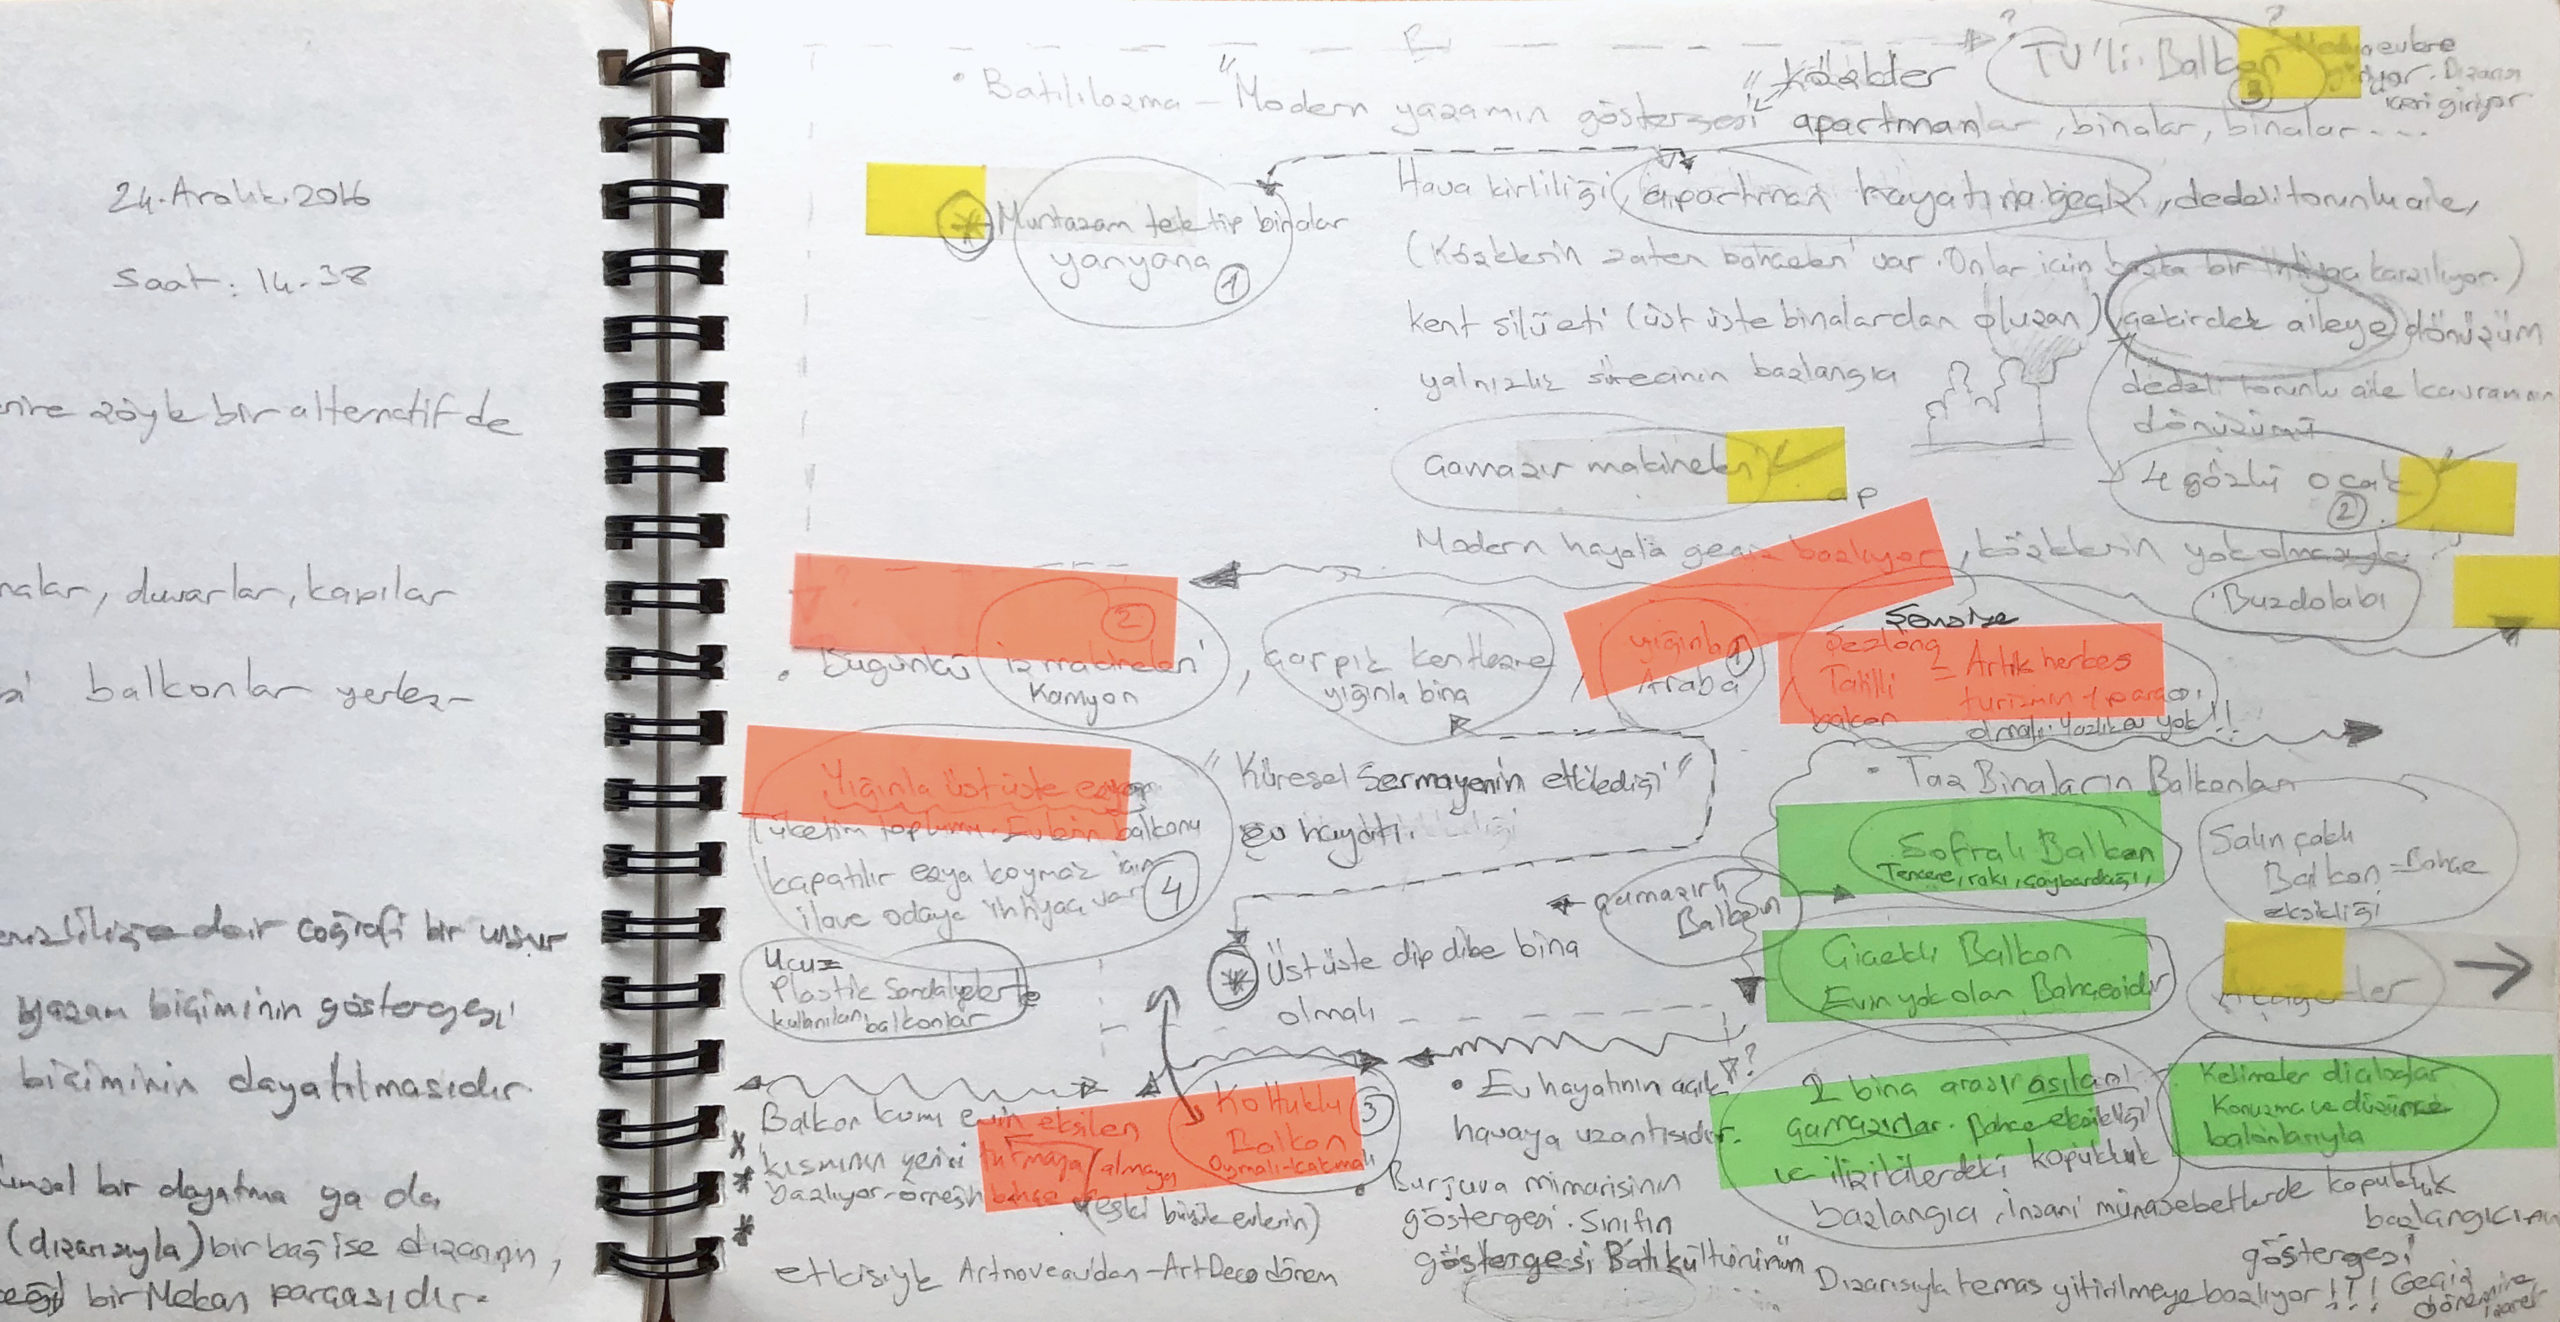 24.Aralık.2016
Saat: 14.38
şöyle bir alternatif de
duvarlar, kapılar
balkonlar yerleş-
dair coğrafi bir unsur
yaşam biçiminin göstergesi
biçiminin dayatılmasıdır.
bir dayatma ya da
(dışarısıyla) bir bağ ise dışarının,
bir Mekan parçasıdır.
B
? TV'li Balkon ?
3
evlere
giriyor. Dışarısı
içeri giriyor.
"Köşkler
• Batılılaşma - "Modern yaşamın göstergesi" apartmanlar, binalar, binalar ....
* Muntazam tek tip binalar
yanyana 1
Hava kirliliği, apartman hayatına geçiş, dedeli torunlu aile,
(Köşklerin zaten bahçeleri var. Onlar için başka bir ihtiyacı karşılıyor.)
kent silüeti (üst üste binalardan oluşan) çekirdek aileye dönüşüm
yalnızlık sürecinin başlangıcı
dedeli torunlu aile kavramının
dönüşümü
Çamaşır makineleri
4 gözlü ocak
2
ap
Modern hayata geçiş başlıyor, köşklerin yok olmasıyla
Buzdolabı
?
2
• Bugünkü iş makineleri
Kamyon
, çarpık kentleşme
yığınla bina
, yığınla 1
Araba
Şemsiye
Şezlong
Tatilli
balkon
= Artık herkes
turizmin 1 parçası
olmalı. Yazlık ev yok!!
Yığınla üst üste eşya
(tüketim toplumu. Evlerin balkonu
kapatılır eşya koymak için
ilave odaya ihtiyaç var
4
"Küresel Sermayenin etkilediği"
ev hayatı.
• Taş Binaların Balkonları
Sofralı Balkon
Tencere, rakı, çay bardağı,
Salıncaklı
Balkon = Bahçe
eksikliği
Çamaşırlı
Balkon
* Üst üste dip dibe bina
olmalı
Çiçekli Balkon
Evin yok olan Bahçesidir
Ucuz
Plastik Sandalyelerle
kullanılan balkonlar
Balkon kısmı evin eksilen
kısmının yerini tutmaya/almaya
başlıyor-örneğin bahçe (eski büyük evlerin)
*
*
*
etkisiyle Artnoveau'dan-ArtDeco dönem
Koltuklu 3
Balkon
Oymalı-kakmalı
?
• Ev hayatının açık
havaya uzantısıdır.
• Burjuva mimarisinin
göstergesi. Sınıfın
göstergesi Batı kültürünün
2 bina arası asılan
çamaşırlar. Bahçe eksikliği
ve ilişkilerdeki kopukluk
başlangıcı, İnsani münasebetlerde kopukluk
başlangıcının
göstergesi
Kelimeler dialoglar
Konuşma ve düşünce
balonlarıyla
Dışarısıyla temas yitirilmeye başlıyor!!! Geçiş
dönemine
işaret